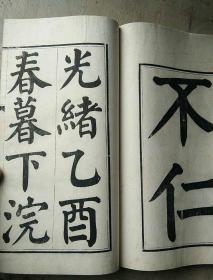 不仁
光緒乙酉
春暮下浣